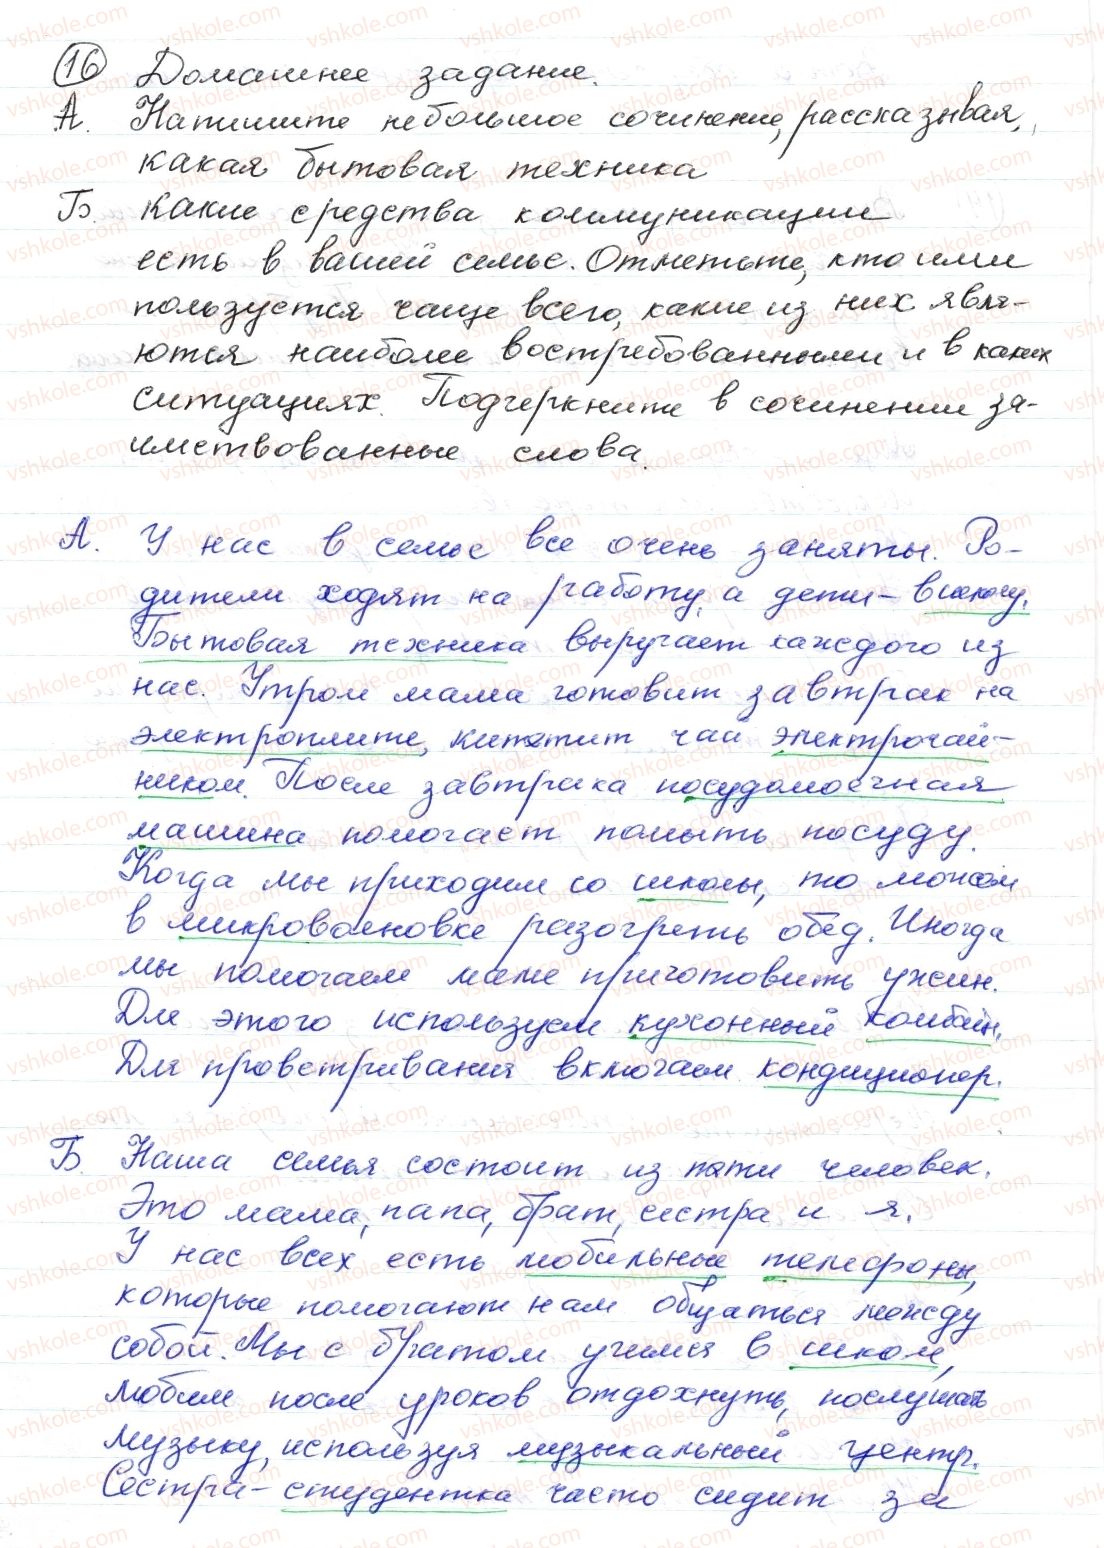 16 Домашнее задание.
А. Напишите небольшое сочинение, рассказывая,
какая бытовая техника
Б. какие средства коммуникации
есть в вашей семье. Отметьте, кто ими
пользуется чаще всего, какие из них явля-
ются наиболее востребованными и в каких
ситуациях. Подчеркните в сочинении за-
имствованные слова.
А. У нас в семье все очень заняты. Ро-
дители ходят на работу, а дети - в школу.
Бытовая техника выручает каждого из
нас. Утром мама готовит завтрак на
электроплите, кипятит чай электрочай-
ником. После завтрака посудомоечная
машина помогает помыть посуду.
Когда мы приходим со школы, то можем
в микроволновке разогреть обед. Иногда
мы помогаем маме приготовить ужин.
Для этого используем кухонный комбайн.
Для проветривания включаем кондиционер.
Б. Наша семья состоит из пяти человек.
Это мама, папа, брат, сестра и я.
У нас всех есть мобильные телефоны,
которые помогают нам общаться между
собой. Мы с братом учимся в школе,
любим после уроков отдохнуть, послушать
музыку, используя музыкальный центр.
Сестра - студентка часто сидит за